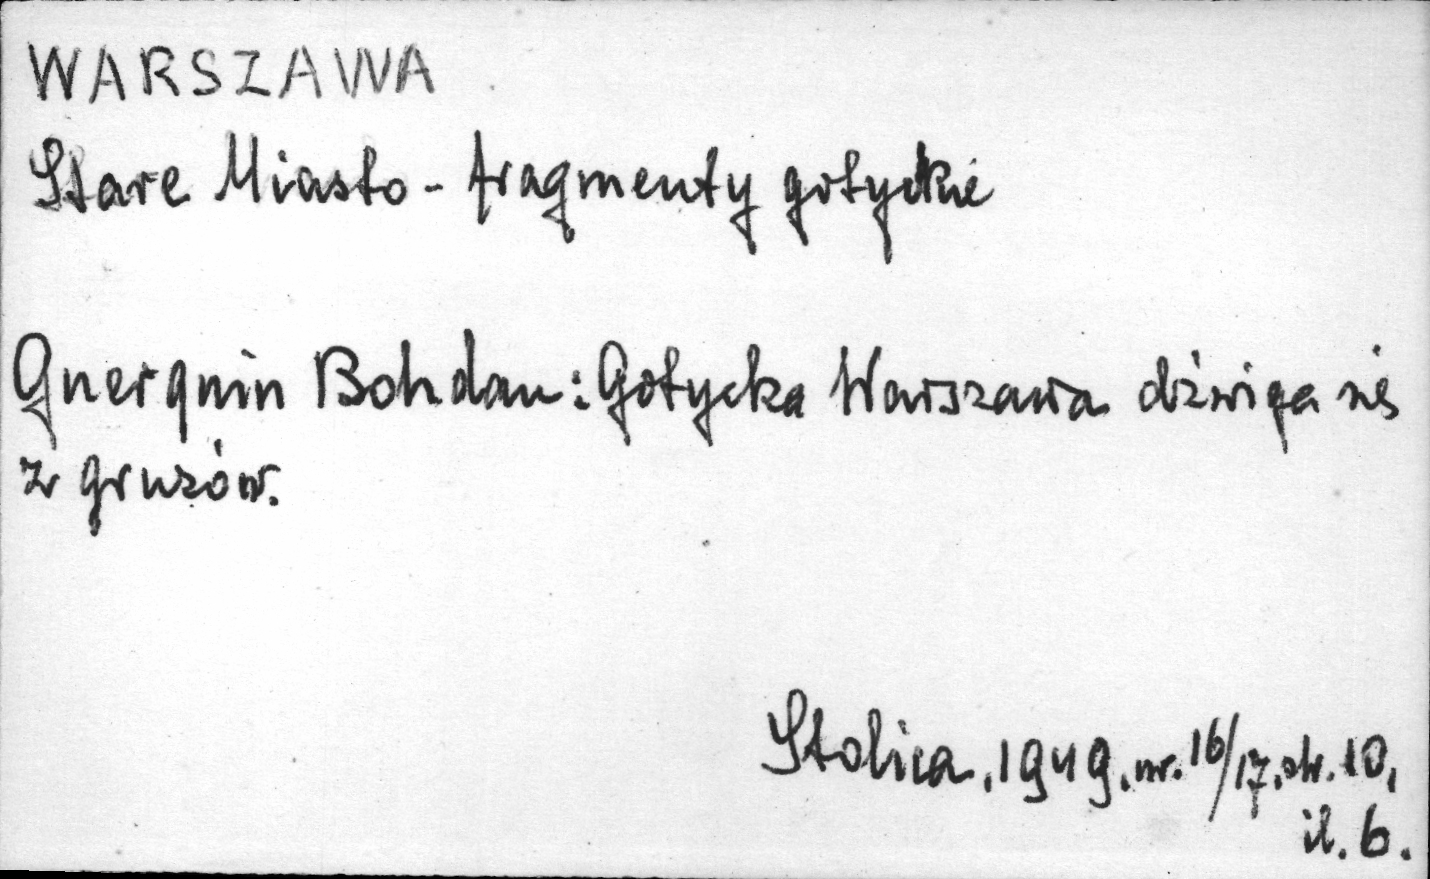 WARSZAWA
Stare Miasto - fragmenty gotyckie
Guerquin Bohdan: Gotycka Warszawa dźwiga się
z gruzów.
Stolica, 1949, nr. 16/17, str. 10,
il. 6.